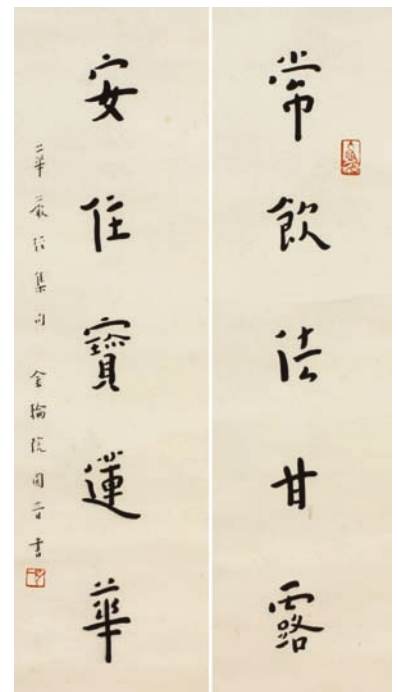 常飲法甘露
安住寶蓮華
二華嚴經集句 金輪院音書